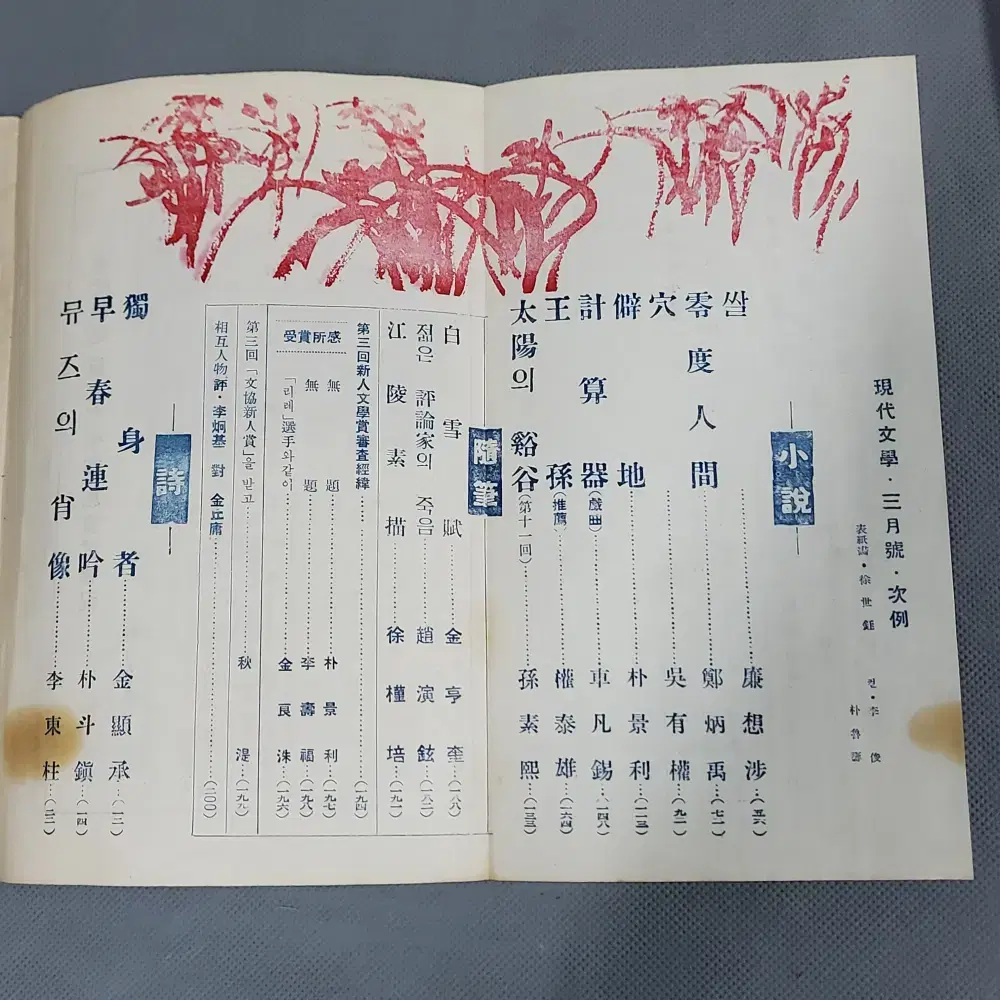 現代文學・三月號・次例
表紙畵・徐世鈺
컨・李俊
朴魯壽
小說
쌀……廉想涉…(五六)
零度人間……鄭炳禹…(七二)
穴……吳有權…(九二)
僻地……朴景利…(一一三)
計算器(戱曲)……車凡錫…(一四八)
王孫(推薦)……權泰雄…(一六四)
太陽의 谿谷(第十一回)……孫素熙…(一三三)
隨筆
白雪賦……金亨奎…(一八八)
젊은 評論家의 죽음……趙演鉉…(一八二)
江陵素描……徐槿培…(一九一)
第三回新人文學賞審査經緯……(一九四)
受賞所感
無題……朴景利…(一九七)
無題……李壽福…(一九八)
「리레」選手와같이……金良洙…(一九六)
第三回「文協新人賞」을 받고……秋湜…(一九九)
相互人物評・李炯基 對 金丘庸……(二〇〇)
詩
獨身者……金顯承…(一二)
早春連吟……朴斗鎭…(一四)
뮤즈의 肖像……李東柱…(二二)